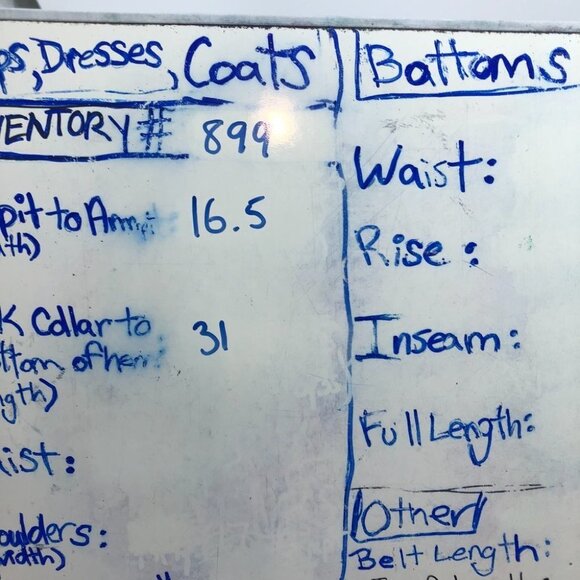 ps, Dresses, Coats
ENTORY# 899
pit to Armpit: 16.5
th)
K Collar to 31
ttom of hem:
gth)
ist:
oulders:
width)
Bottoms
Waist:
Rise:
Inseam:
Full Length:
Other
Belt Length: